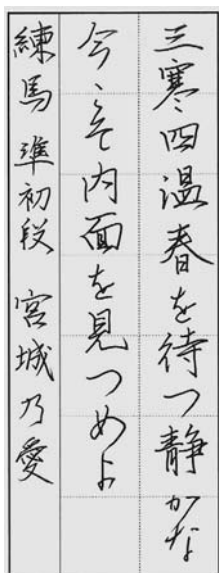 三寒四温春を待つ静かな
今こそ内面を見つめよ
練馬 準初段 宮城乃愛